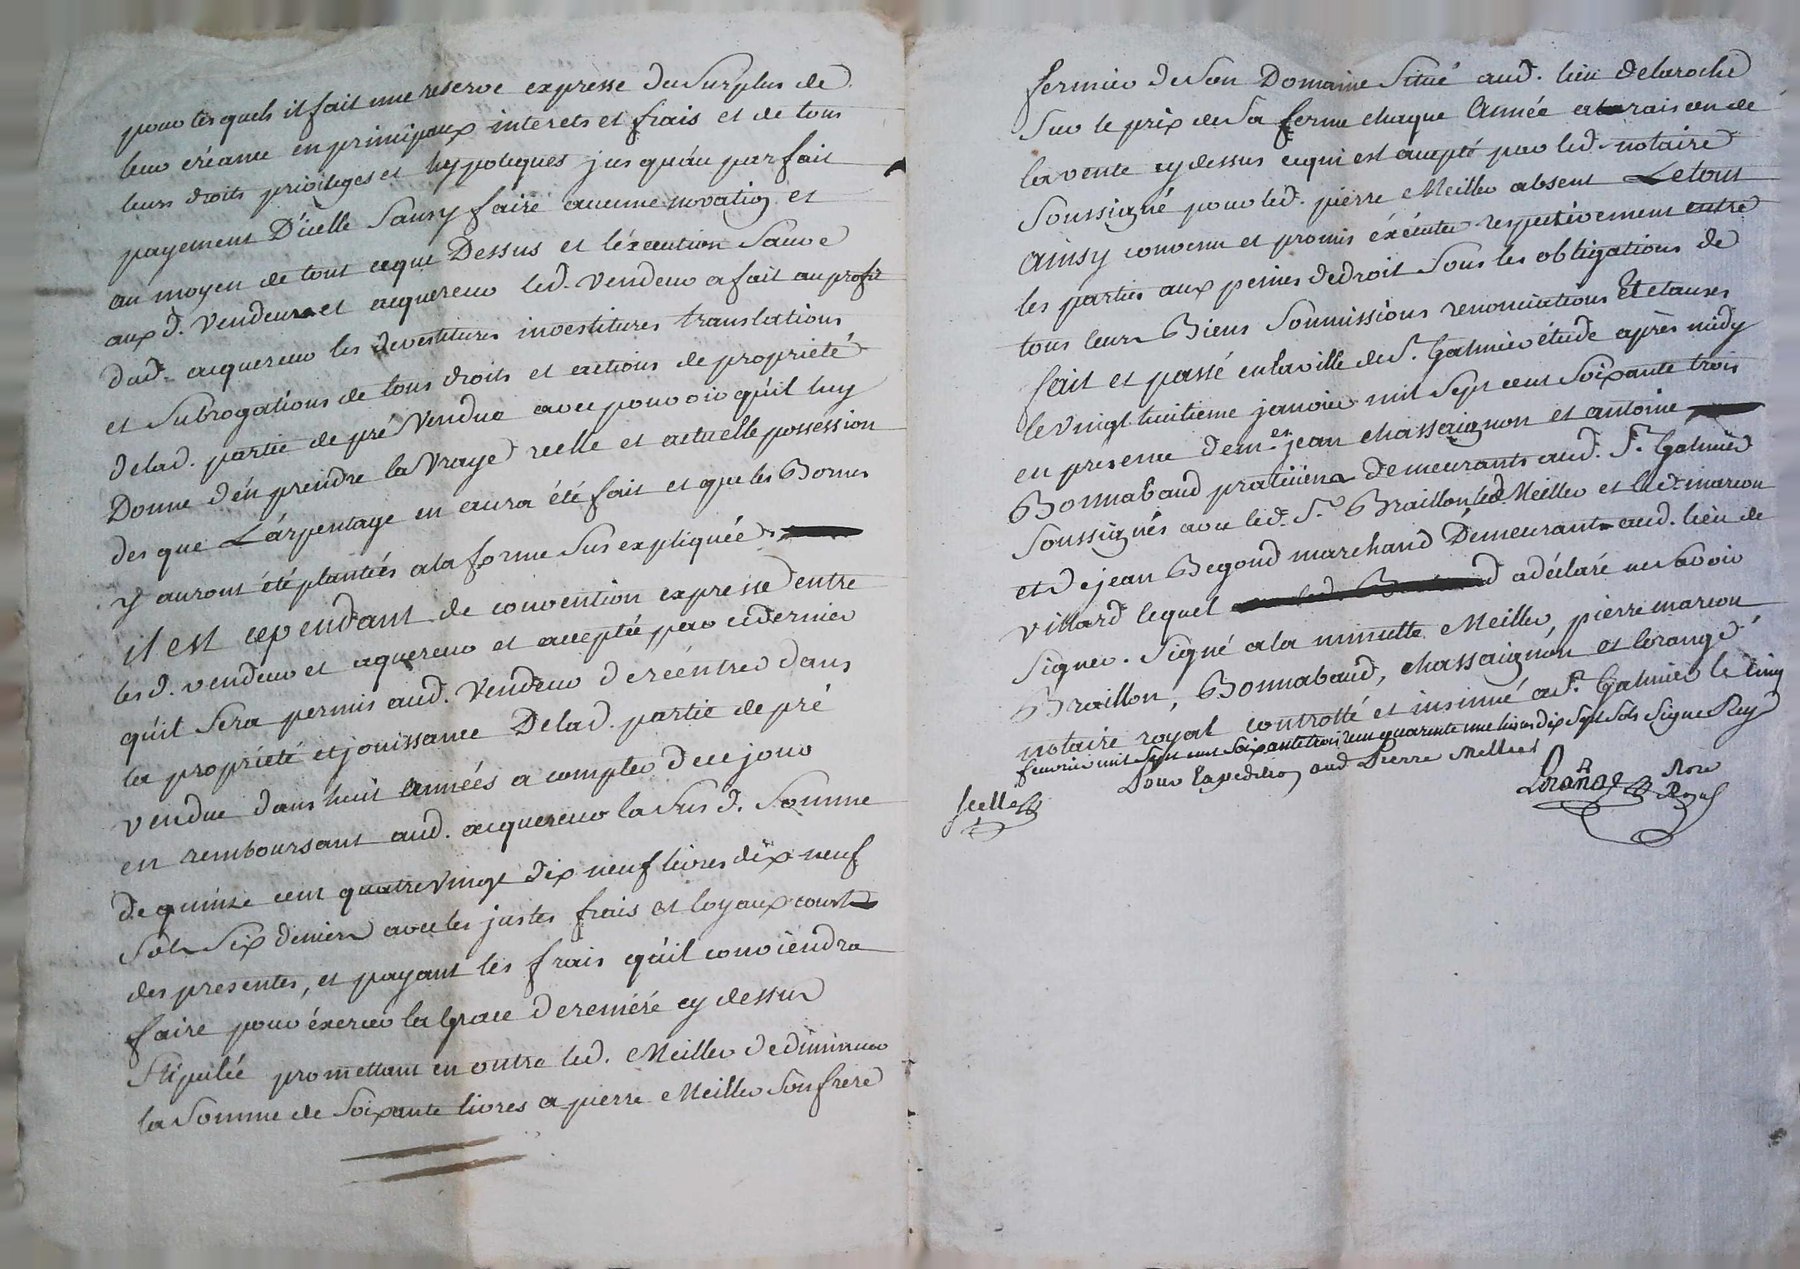 pour lesquels il fait une reserve expresse du surplus de
leur créance en principaux interets et frais et de tous
leurs droits privileges et hypoteques jusqu'au parfait
payement D'icelle sans y faire aucune novation et
au moyen de tout ceque Dessus et l'éxecution sauve
auxd. Vendeur et acquereur led. Vendeur a fait au profit
dud. acquereur les devestitures investitures translations
et subrogations de tous droits et actions de propriété
delad. partie de pré Vendue avec pouvoir qu'il luy
Donne d'en prendre la Vraye reelle et actuelle possession
des que L'arpentage en aura été fait et que les Bornes
y auront été plantées a la forme sus expliquée
il est cependant de convention expresse d'entre
lesd. vendeur et aquereur et acceptée par ce dernier
qu'il sera permis aud. Vendeur de reéntrer dans
la propriété et jouissance Delad. partie de pré
vendue dans huit années a compter de ce jour
en remboursant aud. acquereur la susd. somme
de quinze cent quatre vingt dix neuf livres dix neuf
sols six deniers avec les justes frais et loyaux couts
des presentes, et payant les frais qu'il conviendra
faire pour éxercer la grace de reméré cy dessus
stipulée promettant en outre led. Meiller de diminuer
la somme de soixante livres a pierre Meiller son frere
fermier de son Domaine situé aud. lieu delaroche
sur le prix de sa ferme chaque année a raison de
la vente cy dessus cequi est accepté par led. notaire
soussigné pour led. pierre Meiller absent Le tout
ainsy convenu et promis éxécuter respectivement entre
les parties aux peines de droit sous les obligations de
tous leurs Biens soumissions renonciations Et clauses
fait et passé en la ville de St. Galmier étude après midy
le vingt huitieme janvier mil sept cent soixante trois
en presence de mes. jean chassaignon et antoine
Bonnabaud praticiens demeurants aud. St. Galmier
soussignés avec led. Sr. Braillon led. Meiller et led. marcou
et de jean Begond marchand Demeurant aud. lieu de
villard lequel a déclaré ne savoir
signer. signé a la minutte Meiller, pierre marcou
Braillon, Bonnabaud, chassaignon et lorange
notaire royal controllé et insinué a St. Galmier le cinq
fevrier mil sept cent soixante trois reçu quarente une livres dix sept sols signe Rey
Pour Expedition aud Pierre Meiller
Scellé
Lorange Nore
Royal